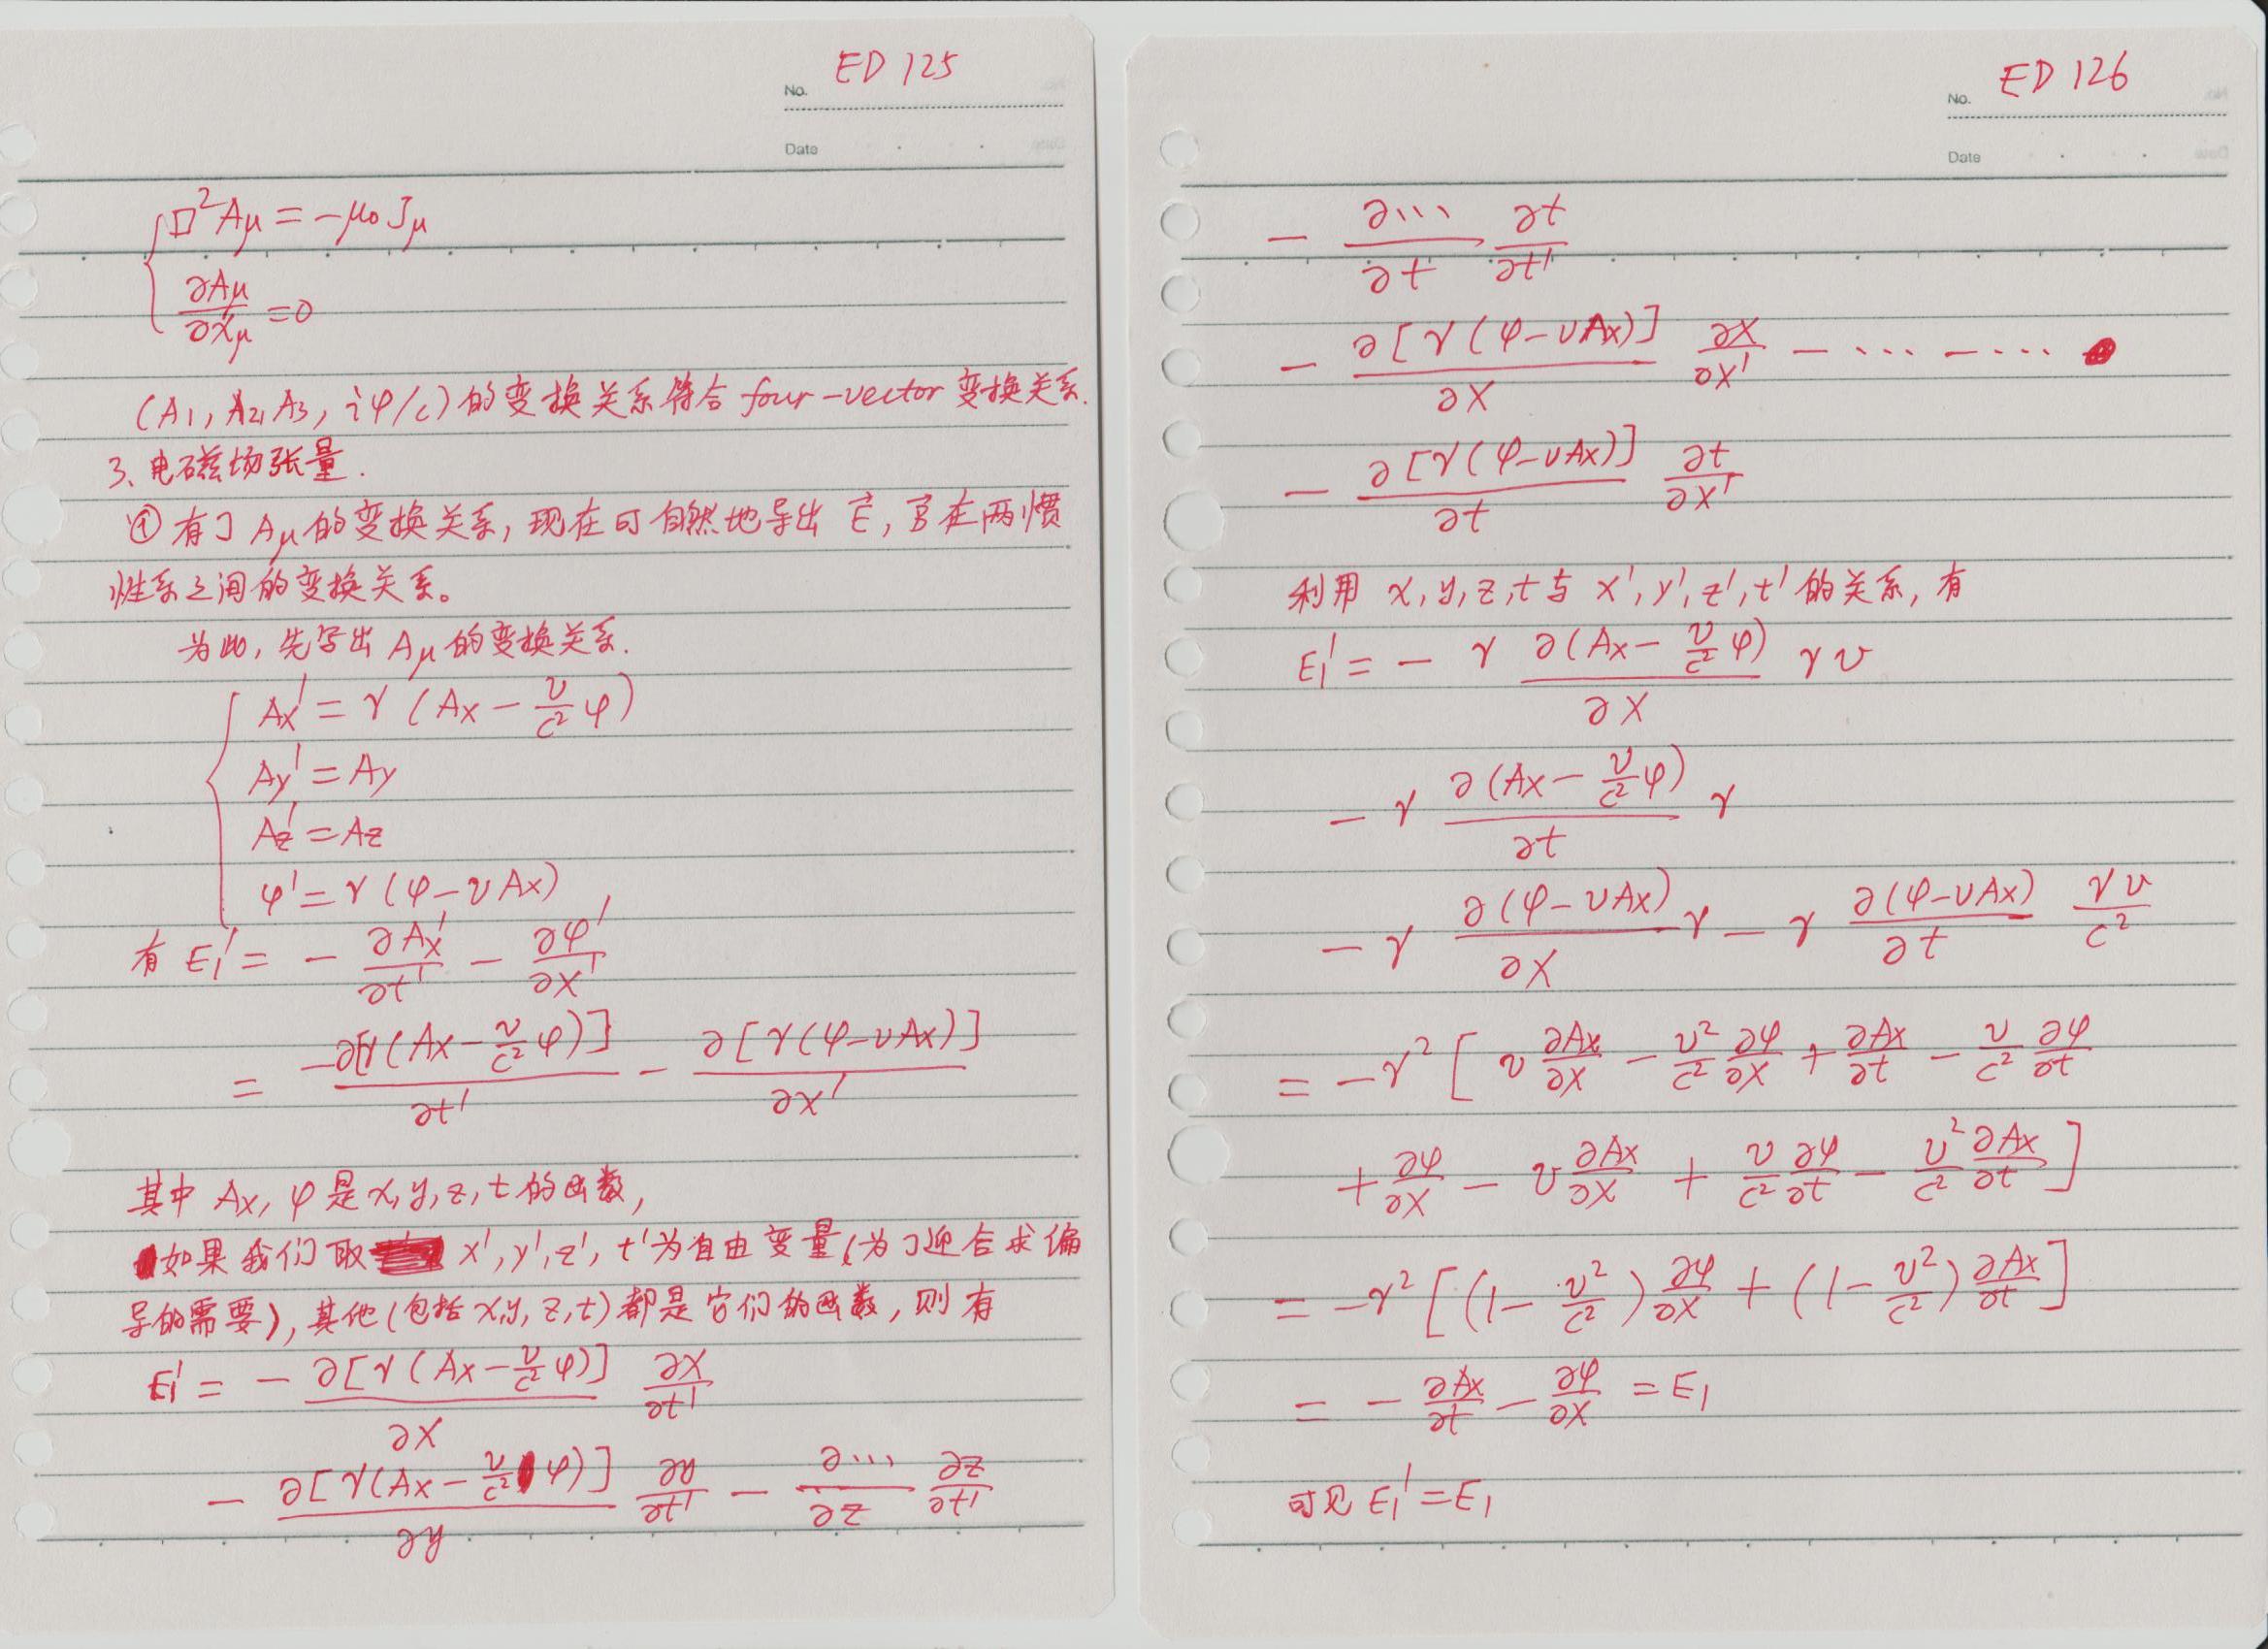 No. ED 125
Date
□²Aμ = -μ₀Jμ
∂Aμ/∂xμ = 0
(A₁, A₂, A₃, iφ/c)的变换关系符合 four-vector 变换关系.
3、电磁场张量.
① 有了 Aμ 的变换关系, 现在可自然地导出 E⃗, B⃗ 在两惯
性系之间的变换关系。
为此, 先写出 Aμ 的变换关系.
Ax' = γ(Ax - v/c² φ)
Ay' = Ay
Az' = Az
φ' = γ(φ - vAx)
有 E₁' = - ∂Ax'/∂t' - ∂φ'/∂x'
= -∂[γ(Ax - v/c² φ)]/∂t' - ∂[γ(φ-vAx)]/∂x'
其中 Ax, φ 是 x, y, z, t 的函数,
如果我们取 x', y', z', t' 为自由变量(为了迎合求偏
导的需要), 其他(包括 x, y, z, t)都是它们的函数, 则有
E₁' = - ∂[γ(Ax - v/c² φ)]/∂x ∂x/∂t'
- ∂[γ(Ax - v/c² φ)]/∂y ∂y/∂t' - ∂…/∂z ∂z/∂t'
No. ED 126
Date
- ∂…/∂t ∂t/∂t'
- ∂[γ(φ-vAx)]/∂x ∂x/∂x' - … - …
- ∂[γ(φ-vAx)]/∂t ∂t/∂x'
利用 x, y, z, t 与 x', y', z', t' 的关系, 有
E₁' = - γ ∂(Ax - v/c² φ)/∂x γv
- γ ∂(Ax - v/c² φ)/∂t γ
- γ ∂(φ-vAx)/∂x γ - γ ∂(φ-vAx)/∂t γv/c²
= -γ² [ v ∂Ax/∂x - v²/c² ∂φ/∂x + ∂Ax/∂t - v/c² ∂φ/∂t
+ ∂φ/∂x - v ∂Ax/∂x + v/c² ∂φ/∂t - v²/c² ∂Ax/∂t ]
= -γ² [ (1 - v²/c²) ∂φ/∂x + (1 - v²/c²) ∂Ax/∂t ]
= - ∂Ax/∂t - ∂φ/∂x = E₁
可见 E₁' = E₁